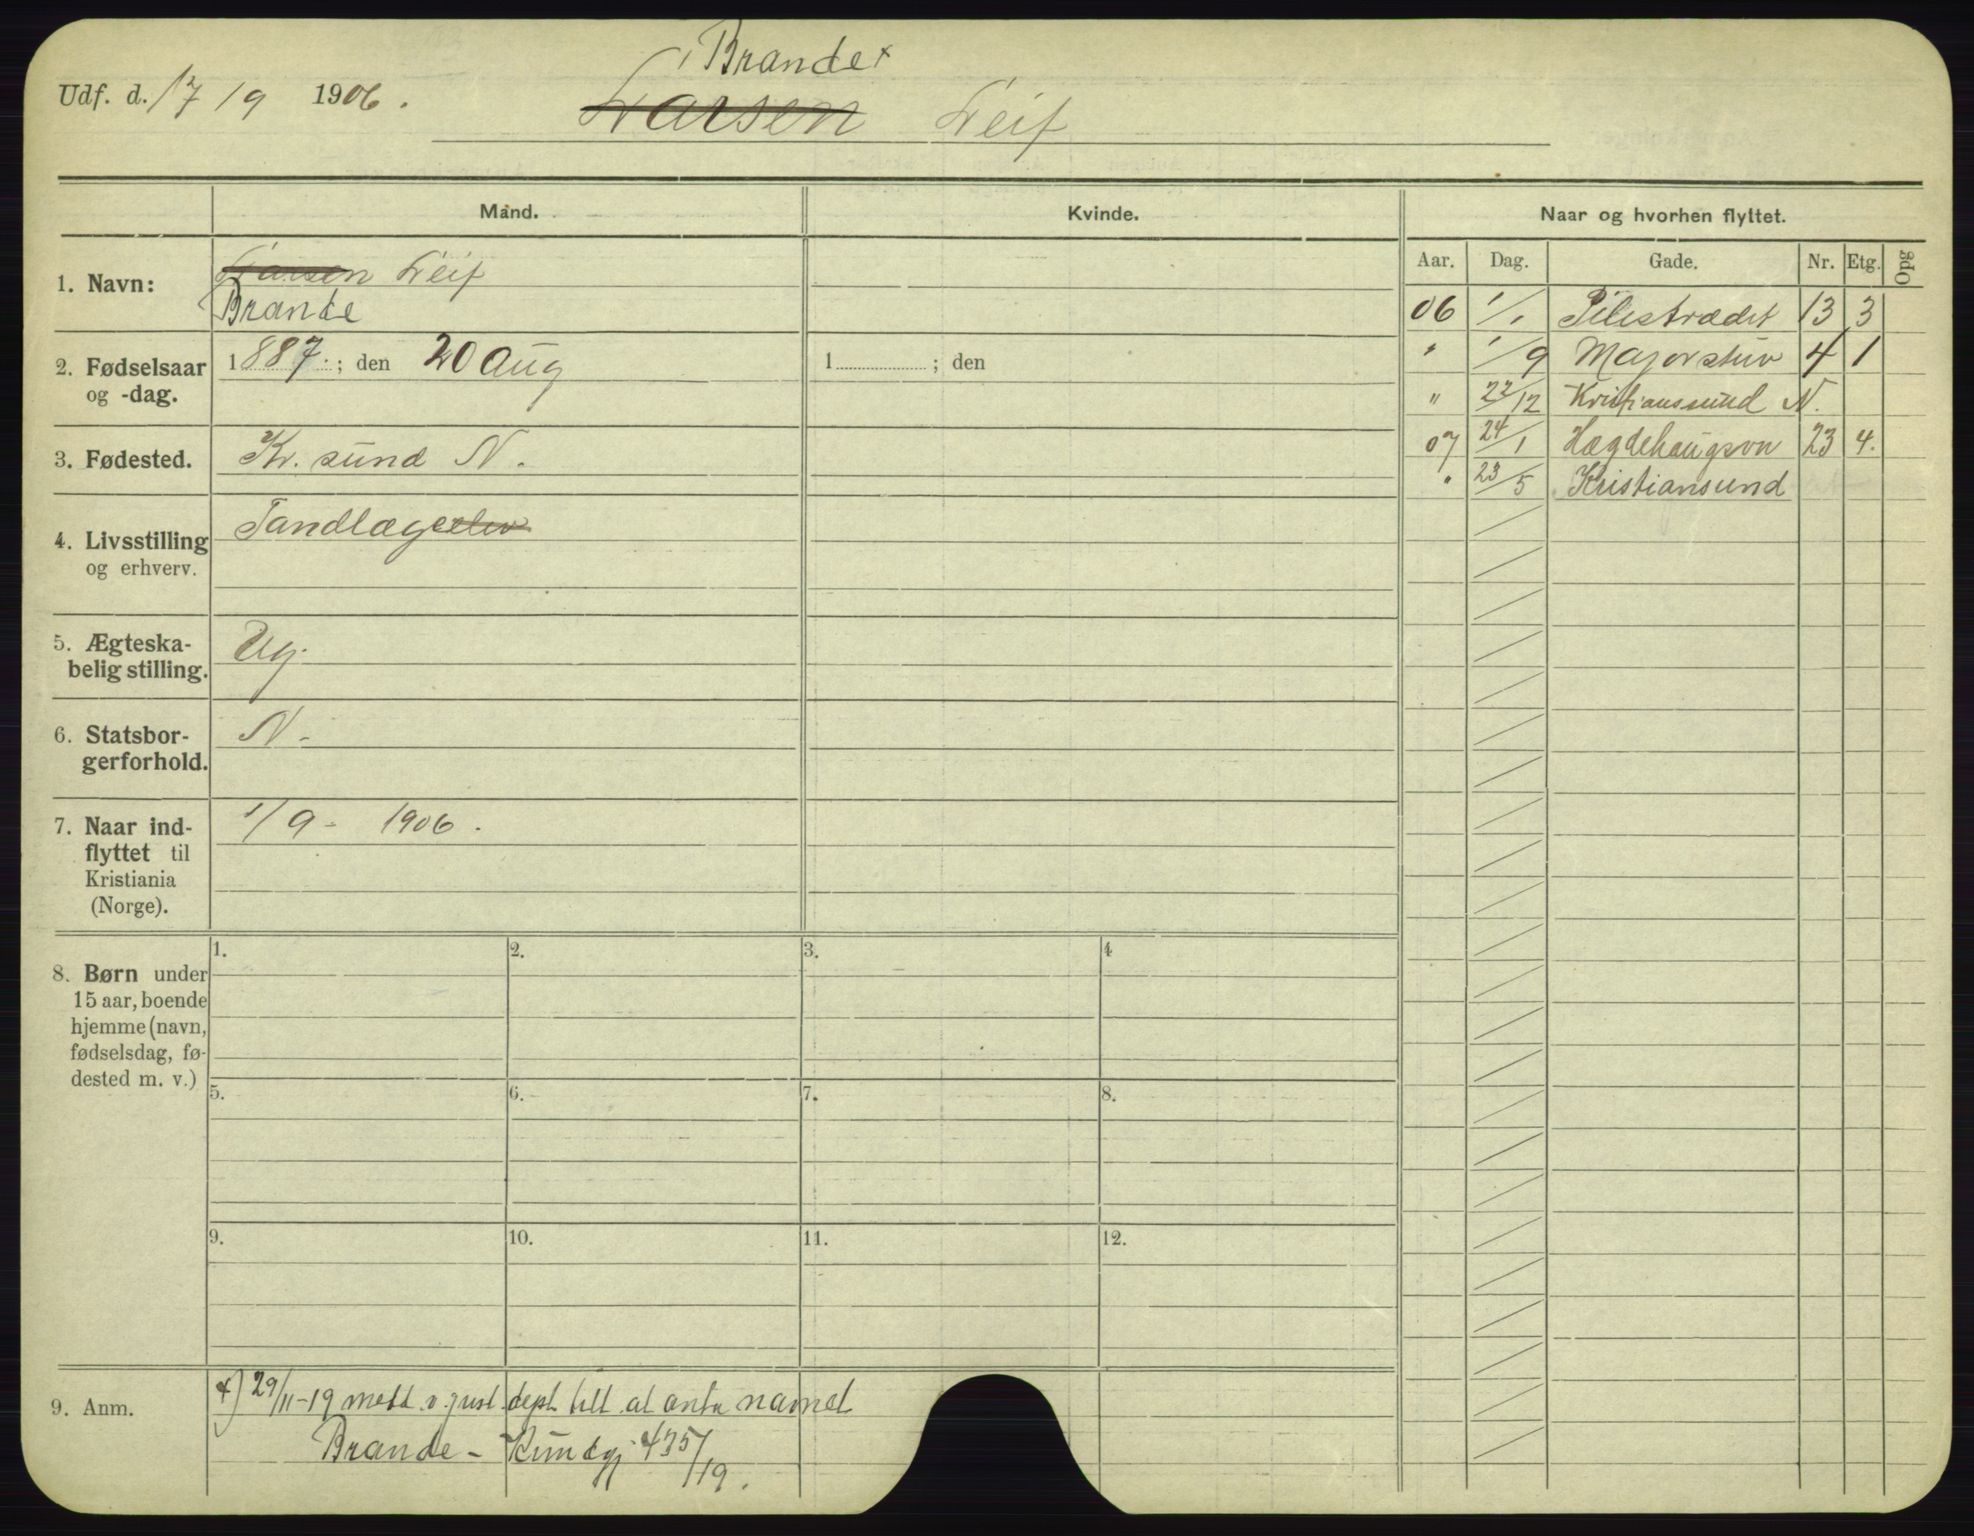 Brande x
Udf. d. 17/9 1906. Larsen Leif
Mand. Kvinde. Naar og hvorhen flyttet.
Aar. Dag. Gade. Nr. Etg. Opg
1. Navn: Larsen Leif
Brande
06 1/1 Pilestrædet 13 3
2. Fødselsaar og -dag. 1887.; den 20 Aug 1 ; den
" 1/9 Majorstuv 4 1
" 22/12 Kristianssund N.
3. Fødested. Kr. sund N.
07 24/1 Hægdehaugsvn 23 4.
" 23/5 Kristiansund
4. Livsstilling og erhverv. Tandlægeelev
5. Ægteskabelig stilling. Ug.
6. Statsborgerforhold. N.
7. Naar indflyttet til Kristiania (Norge). 1/9 - 1906.
8. Børn under
15 aar, boende
hjemme (navn,
fødselsdag, fø-
dested m. v.)
1. 2. 3. 4
5. 6. 7. 8.
9. 10. 11. 12.
9. Anm. x) 29/11-19 medd. v. just. dept. till. at anta navnet
Brande - Kundgj. 435/19.